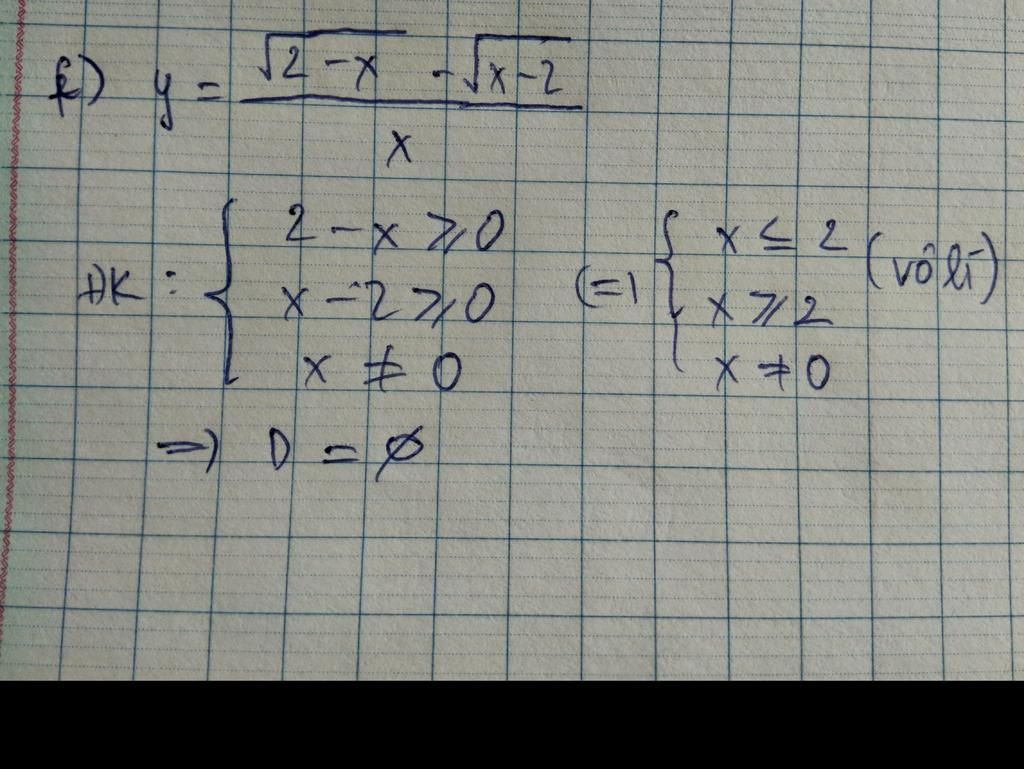 f) y = \frac{\sqrt{2-x} - \sqrt{x-2}}{x}
ĐK : { 2 - x ⩾ 0 ; x - 2 ⩾ 0 ; x ≠ 0 (=) { x ≤ 2 ; x ⩾ 2 ; x ≠ 0 (vô lí)
=) D = ∅